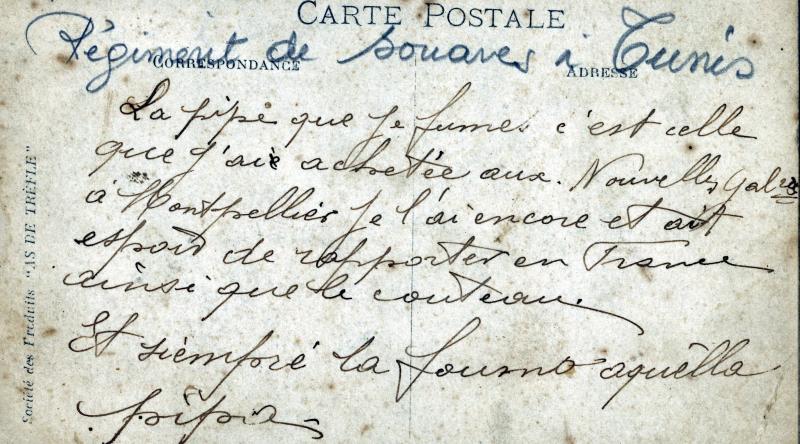 CARTE POSTALE
Régiment de Zouaves à Tunis
CORRESPONDANCE
ADRESSE
La pipe que je fumes c'est celle
que j'aie achetée aux. Nouvelles Galres
à Montpellier je l'ai encore et ait
espoir de rapporter en France
ainsi que le couteau.
Et siempré la foumo aquèlla
pipa
Société des Produits "AS DE TRÈFLE"